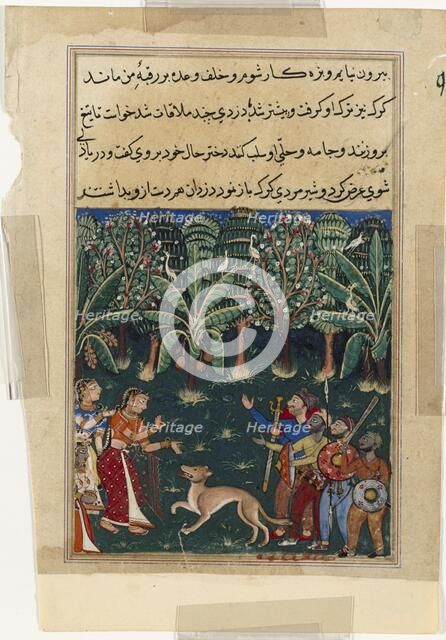 بیرون نیایم و بزه کار شوم و خلف وعده بر رقبهٔ من ماند
کرک نیز ترک او کرفت و پیشتر شد دزدی چند ملاقات شد خواست تا تیغ
بروزنند و جامه و حلی او سلب کنند دختر حال خود بروی کفت و در باز
شوی عرض کرد و شیر مردی کرک باز نمود دزدان هم دست ازو بداشتند
Heritage
Heritage
Heritage
Heritage
Heritage
Heritage
Heritage
Heritage